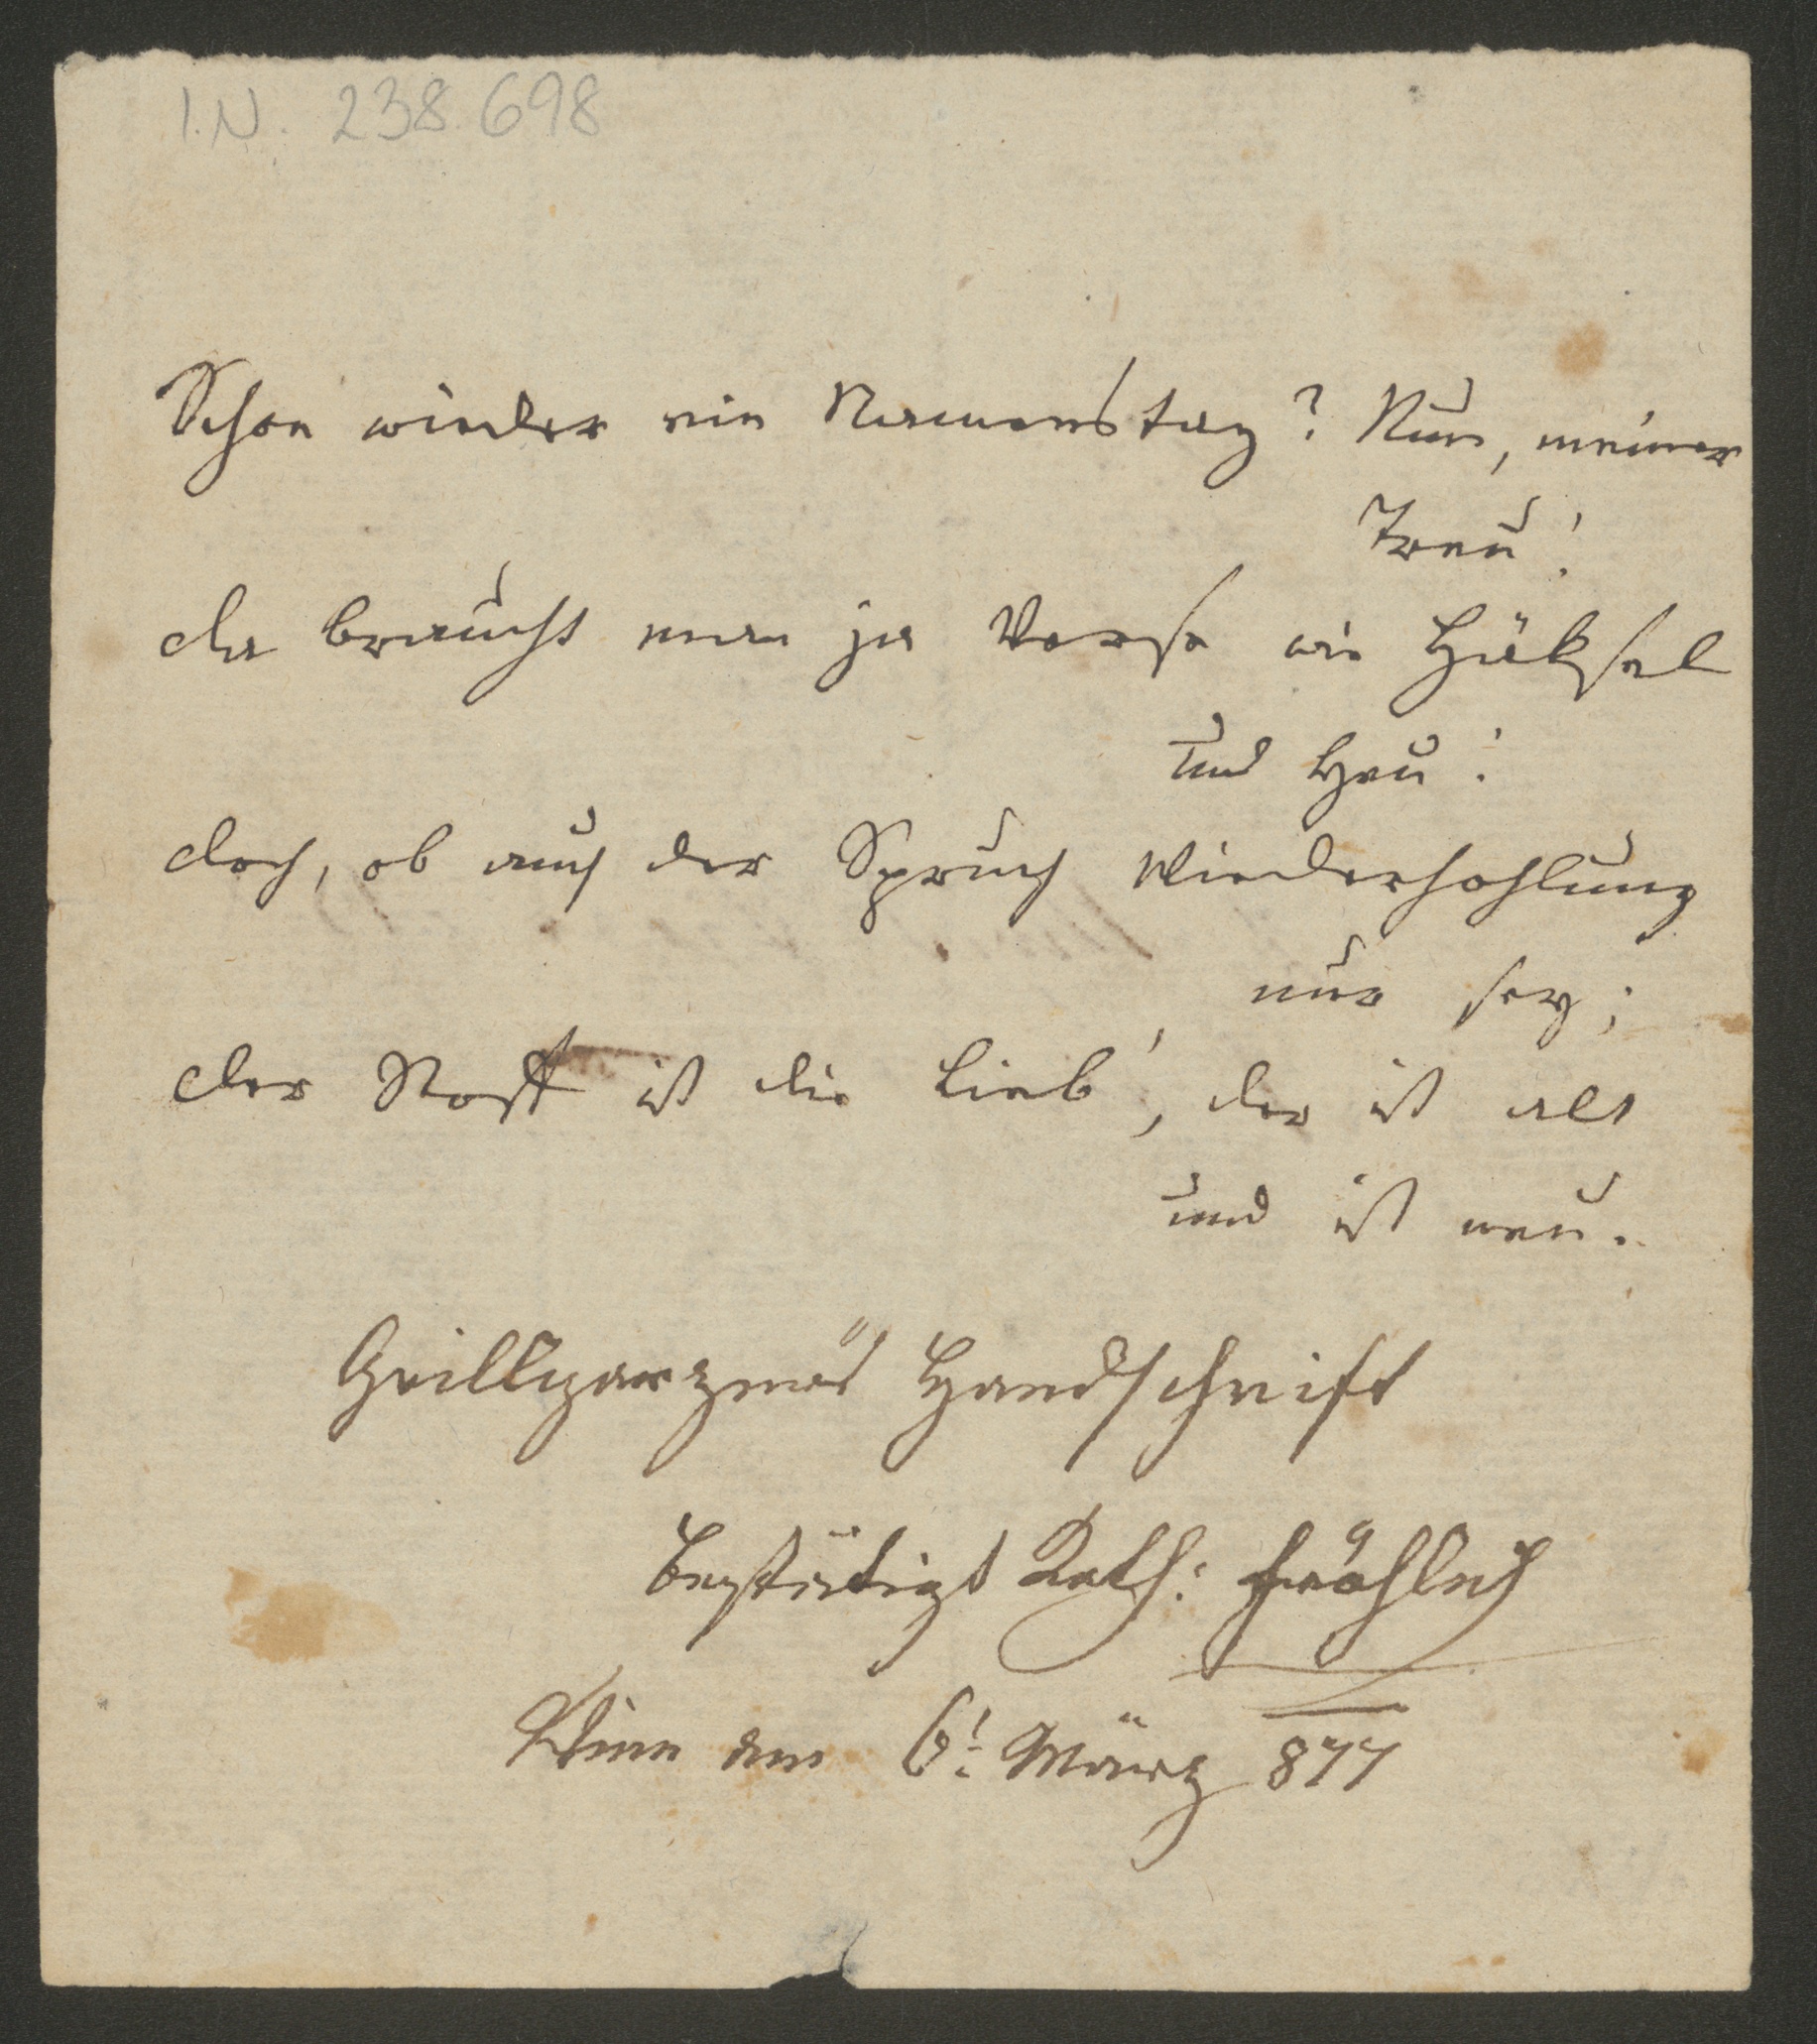 I.N. 238.698
Schon wieder ein Namenstag? Nun, meiner
Treu!
da braucht man ja Verse wie Häksel
und Heu!
doch, ob auch der Spruch Wiederhohlung
nur sey;
der Stoff ist die Lieb', der ist alt
und ist neu.
Grillparzers Handschrift
bestätigt Kath: Fröhlich
Wien am 6t März 877